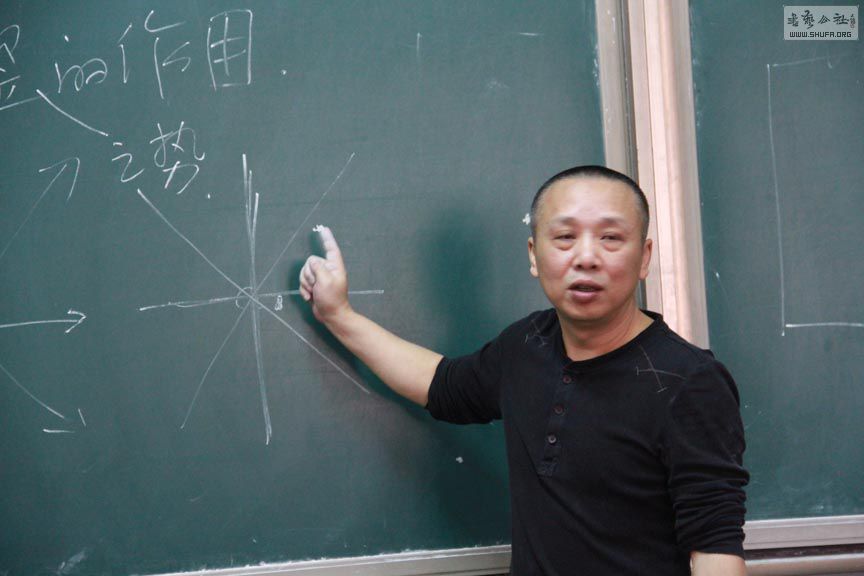 的作用.
之势.
书艺公社
WWW.SHUFA.ORG